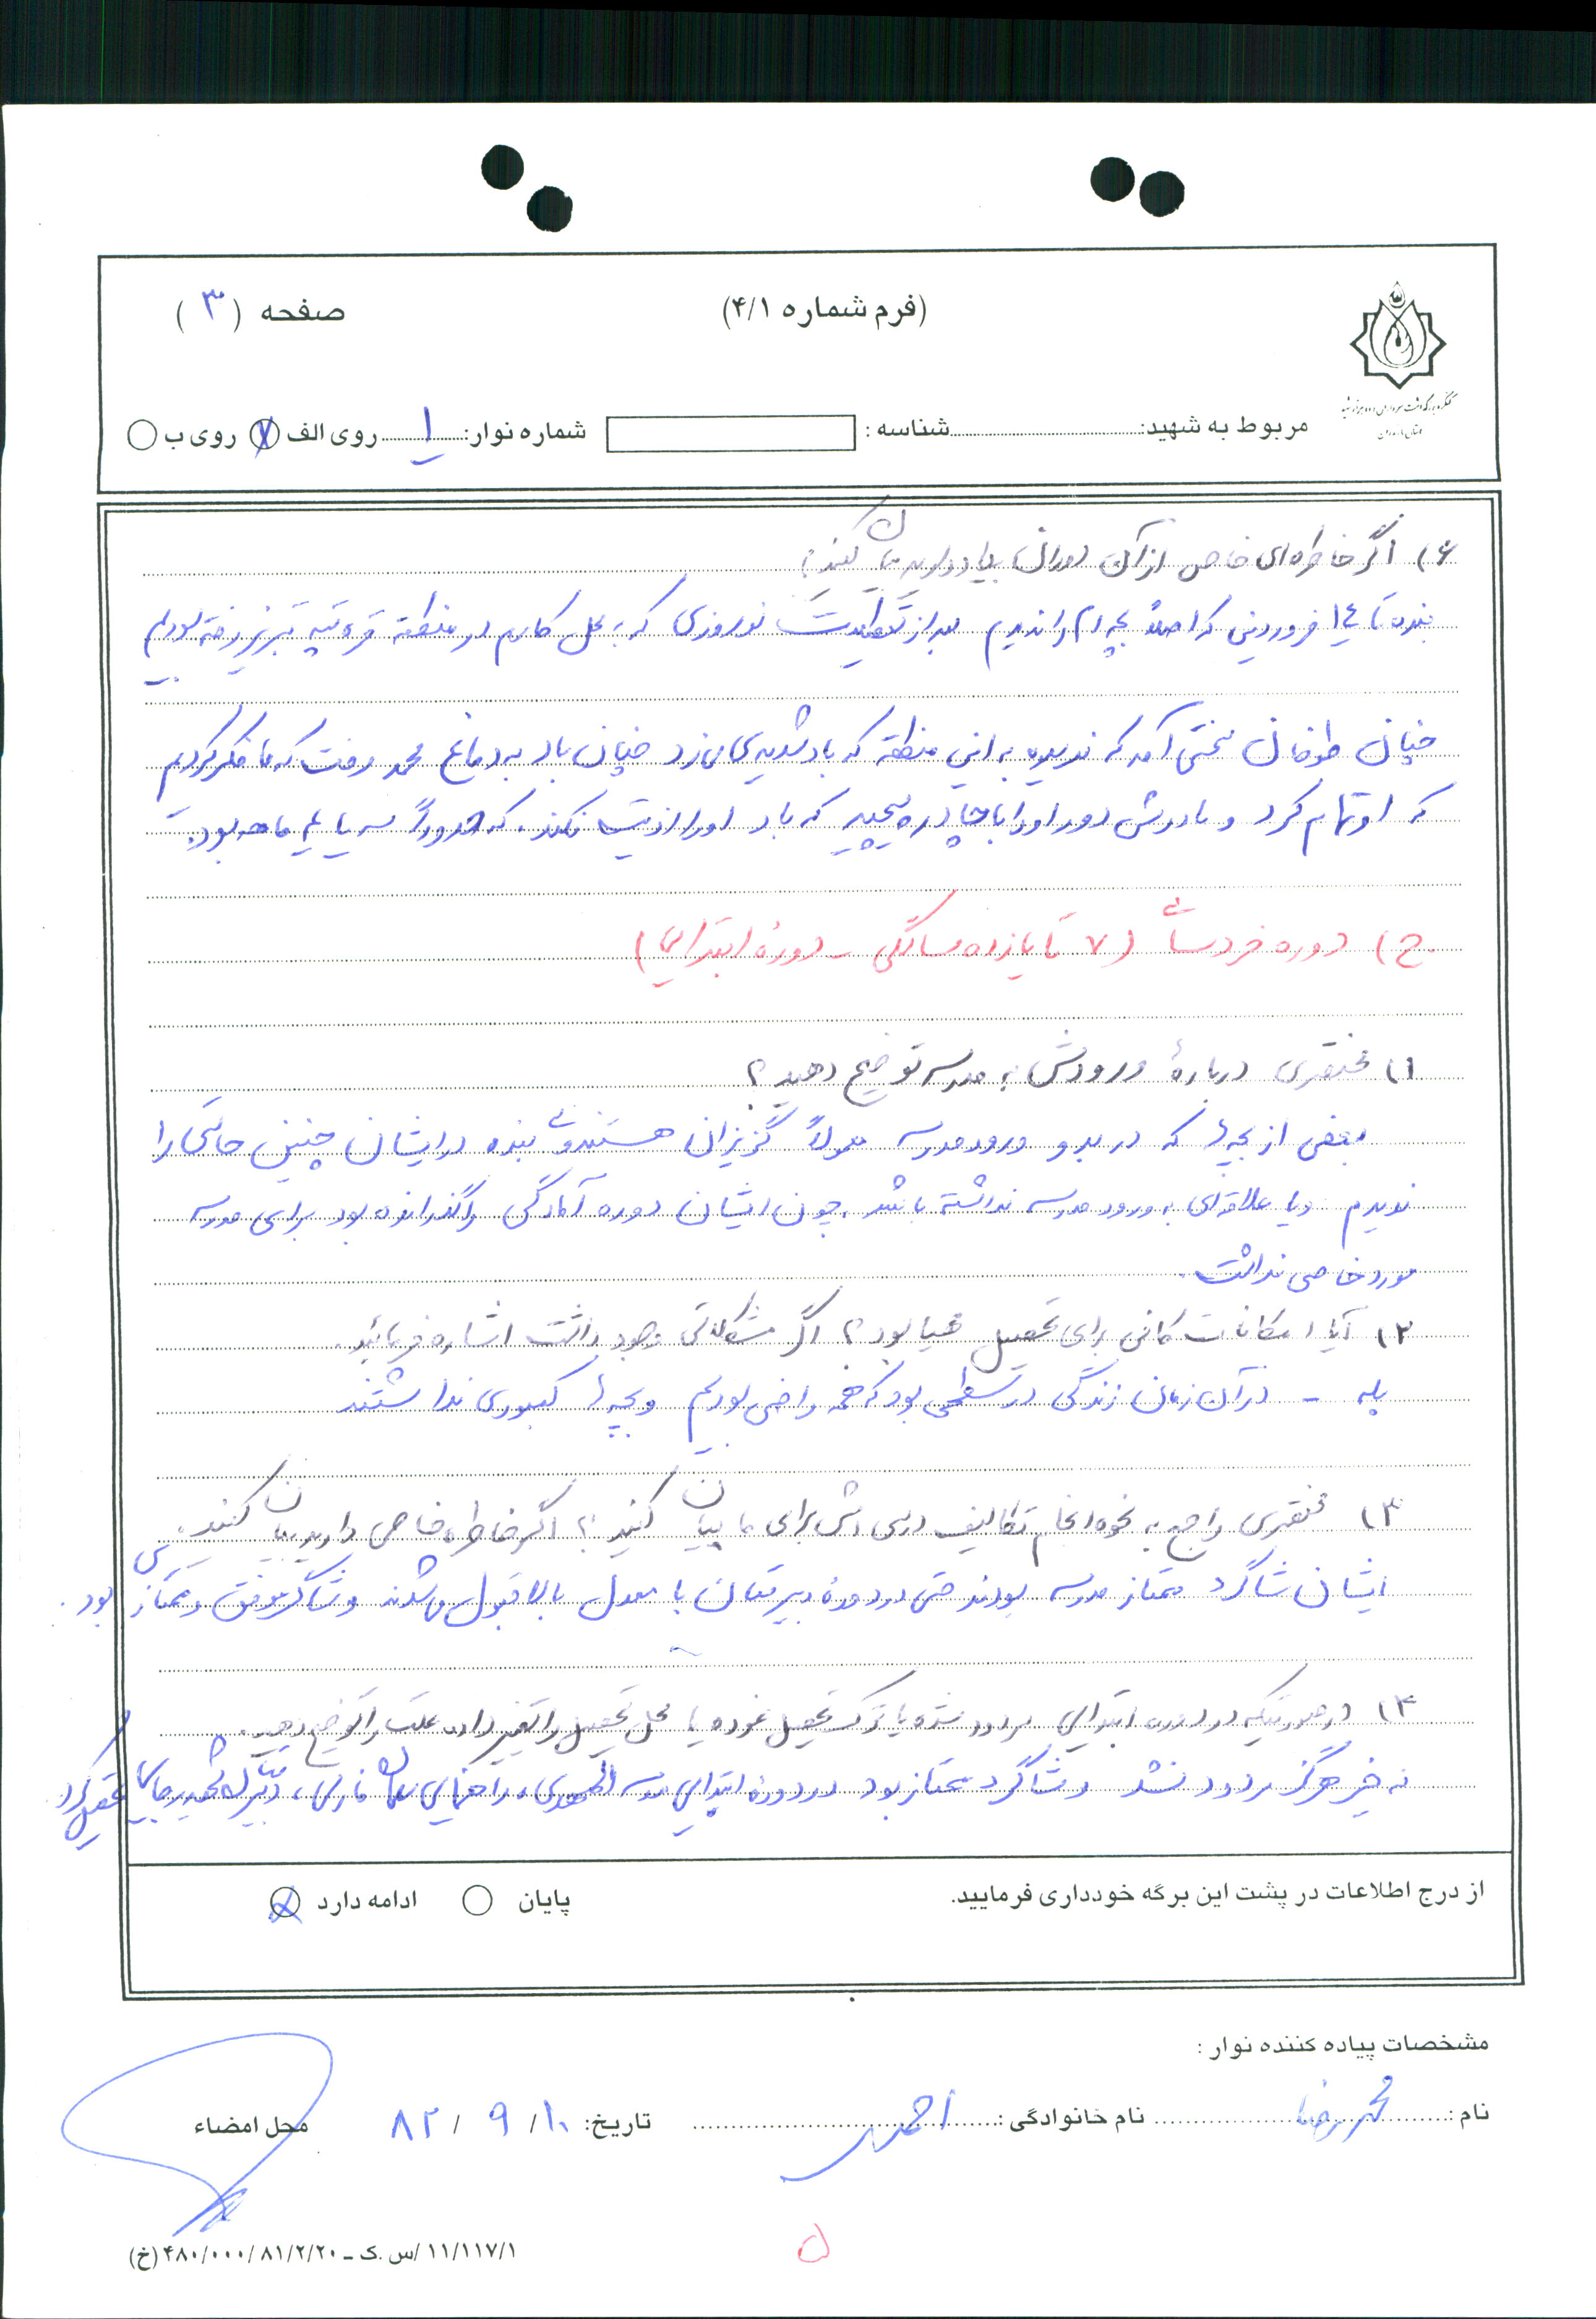 (فرم شماره ۴/۱)
صفحه (۳)
مربوط به شهید: شناسه: شماره نوار: ۱ روی الف روی ب
۶) اگر خاطره‌ای خاص از آن دوران بیاد دارید بیان کنید؟
بنده تا ۱۴ فروردین که اصلاً بچه‌ام را ندیدم بعد از تعطیلات نوروزی که به محل کارم در منطقه قره تپه تبریز رفته بودیم
چنان طوفان سختی آمد که ندیده به این منطقه که باد شدیدی می‌زد چنان باد به دماغ محمد رفت که ما فکر کردیم
که او تمام کرد و مادرش دور او را با چادر پیچید که باد او را اذیت نکند. که حدوداً سه یا ۴ ماهه بود.
ج) دوره خردسالی (۷ تا یازده سالگی - دورۀ ابتدایی)
۱) مختصری دربارۀ ورودش به مدرسه توضیح دهید؟
بعضی از بچه‌ها که در بدو ورود مدرسه معمولاً گریزان هستند ولی بنده در ایشان چنین حالتی را
ندیدم و یا علاقه‌ای به ورود مدرسه نداشته باشد. چون ایشان دوره آمادگی را گذرانده بود برای مدرسه
مورد خاصی نداشت.
۲) آیا امکانات کافی برای تحصیل مهیا بود؟ اگر مشکلاتی وجود داشت اشاره فرمائید.
بله - در آن زمان زندگی در سطحی بود که همه راضی بودیم و بچه‌ها کمبودی نداشتند
۳) مختصری راجع به نحوه انجام تکالیف درسی‌اش برای ما بیان کنید؟ اگر خاطره خاصی دارید بیان کنید.
ایشان شاگرد ممتاز مدرسه بودند حتی در دورۀ دبیرستان با معدل بالا قبول می‌شدند و شاگرد موفق و ممتازی بود.
۴) در صورتیکه در دوره ابتدایی مردود شده یا ترک تحصیل نموده یا محل تحصیل را تغییر داده علت را توضیح دهید.
نه خیر هرگز مردود نشد و شاگرد ممتاز بود در دورۀ ابتدایی مدرسه راهنمایی سلمان فارسی، دبیرستان شهید رجایی تحصیل کرد
از درج اطلاعات در پشت این برگه خودداری فرمایید.
پایان ادامه دارد
مشخصات پیاده کننده نوار:
نام: محمدرضا نام خانوادگی: احمدی تاریخ: ۱۰/ ۹ / ۸۲ محل امضاء
۵
۱۱/۱۱۷/۱/س.ک – ۴۸۰/۰۰۰/۸۱/۲/۲۰ (خ)